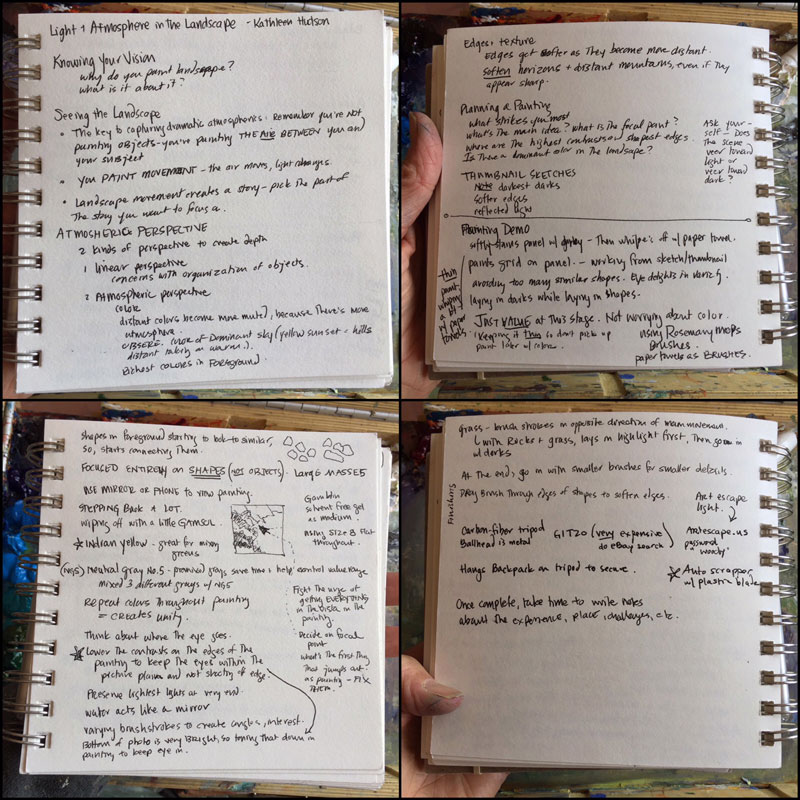 Light + Atmosphere in the Landscape - Kathleen Hudson
Knowing Your Vision
why do you paint landscape?
what is it about it?
Seeing the Landscape
• The key to capturing dramatic atmospherics: Remember you're not
painting objects - you're painting THE AIR BETWEEN YOU and
your subject
• You PAINT MOVEMENT - the air moves, light changes.
• Landscape movement creates a story - pick the part of
The story you want to focus on.
ATMOSHERIC PERSPECTIVE
2 kinds of perspective to create depth
1 linear perspective
concerns with organization of objects.
2 Atmospheric perspective
color
distant colors become more muted, because There's more
atmosphere.
OBSERVE color of Dominant sky (yellow sunset = hills
distant taking on warm.).
Richest colors in FOREGROUND.
Edges + texture
Edges get softer as They become more distant.
soften horizons + distant mountains, even if They
appear sharp.
Planning a Painting
what strikes you most
what's the main idea? what is the focal point?
where are the highest contrasts and sharpest edges.
Is There a dominant color in the landscape?
Ask your-
self - Does
The scene
veer toward
light or
veer toward
dark?
THUMBNAIL SKETCHES
Note darkest darks
softer edges
reflected light
Painting Demo
softly stains panel w/ - Then whipe's off w/ paper towel.
paints grid on panel. - working from sketch/thumbnail
avoiding too many similar shapes. Eye delights in variety.
laying in darks while laying in shapes.
thin
paint
whipping
a bit
w/ paper
towels
JUST VALUE at this stage. Not worrying about color.
Keeping it thin so don't pick up
paint later w/ color.
using Rosemary mops
Brushes.
paper towels as BRUSHES.
shapes in foreground starting to look to similar,
So, starts connecting Them.
FOCUSED ENTIRELY on SHAPES (NOT OBJECTS). LARGE MASSES
USE MIRROR or PHONE to view painting.
STEPPING Back A LOT.
wiping off with a little GAMSOL.
Indian yellow - great for mixing
greens
Gamblin
solvent free gel
as medium.
using Size 8 flat
throughout.
(NG5) Neutral Gray No. 5 - premixed grays save time + help control value range
mixed 3 different grays w/ NG5
Repeat colors Throughout painting
= CREATES unity.
Think about where the eye goes.
Lower the contrasts on the edges of the
painting to keep the eyes within the
picture plane and not shooting off edge.
Preserve lightest lights at very end.
water acts like a mirror
varying brushstrokes to create angles, interest.
Bottom of photo is very BRIGHT, so toning that down in
painting to keep eye in.
Fight the urge of
getting EVERYTHING
in The vista in the
painting.
Decide on focal
point
what's the first Thing
That jumps out.
as painting - FIX
THEM.
grass - brush strokes in opposite direction of main movement.
with Rocks + grass, lays in highlight first, Then goes in
w/ darks
At The end, go in with smaller brushes for smaller details.
Finishing
DRY Brush Through edges of shapes to soften edges.
Art escape
light.
Artescape.us
password
"woody"
Carbon-fiber tripod
Ballhead is metal
GITZO (very expensive)
do eBay search)
Hangs Backpack on tripod to secure.
Auto scrapper
w/ plastic blade
Once complete, take time to write notes
about the experience, place, challenges, etc.